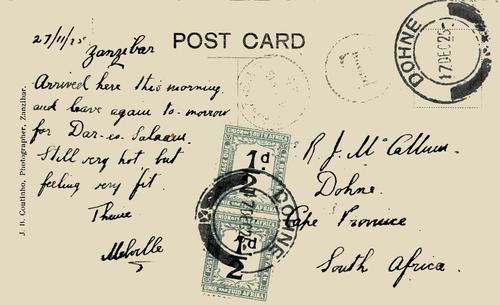 27/11/25
Zanzibar
POST CARD
Arrived here this morning
and leave again to-morrow
for Dar-es-Salaam.
Still very hot but
feeling very fit.
Thine
Melville
J. H. Coutinho, Photographer, Zanzibar.
DOHNE
17 DEC 25
R J. McCallum.
Dohne.
Cape Province
South Africa.
UNION OF SOUTH AFRICA
1/2 d
DOHNE
1/2 d